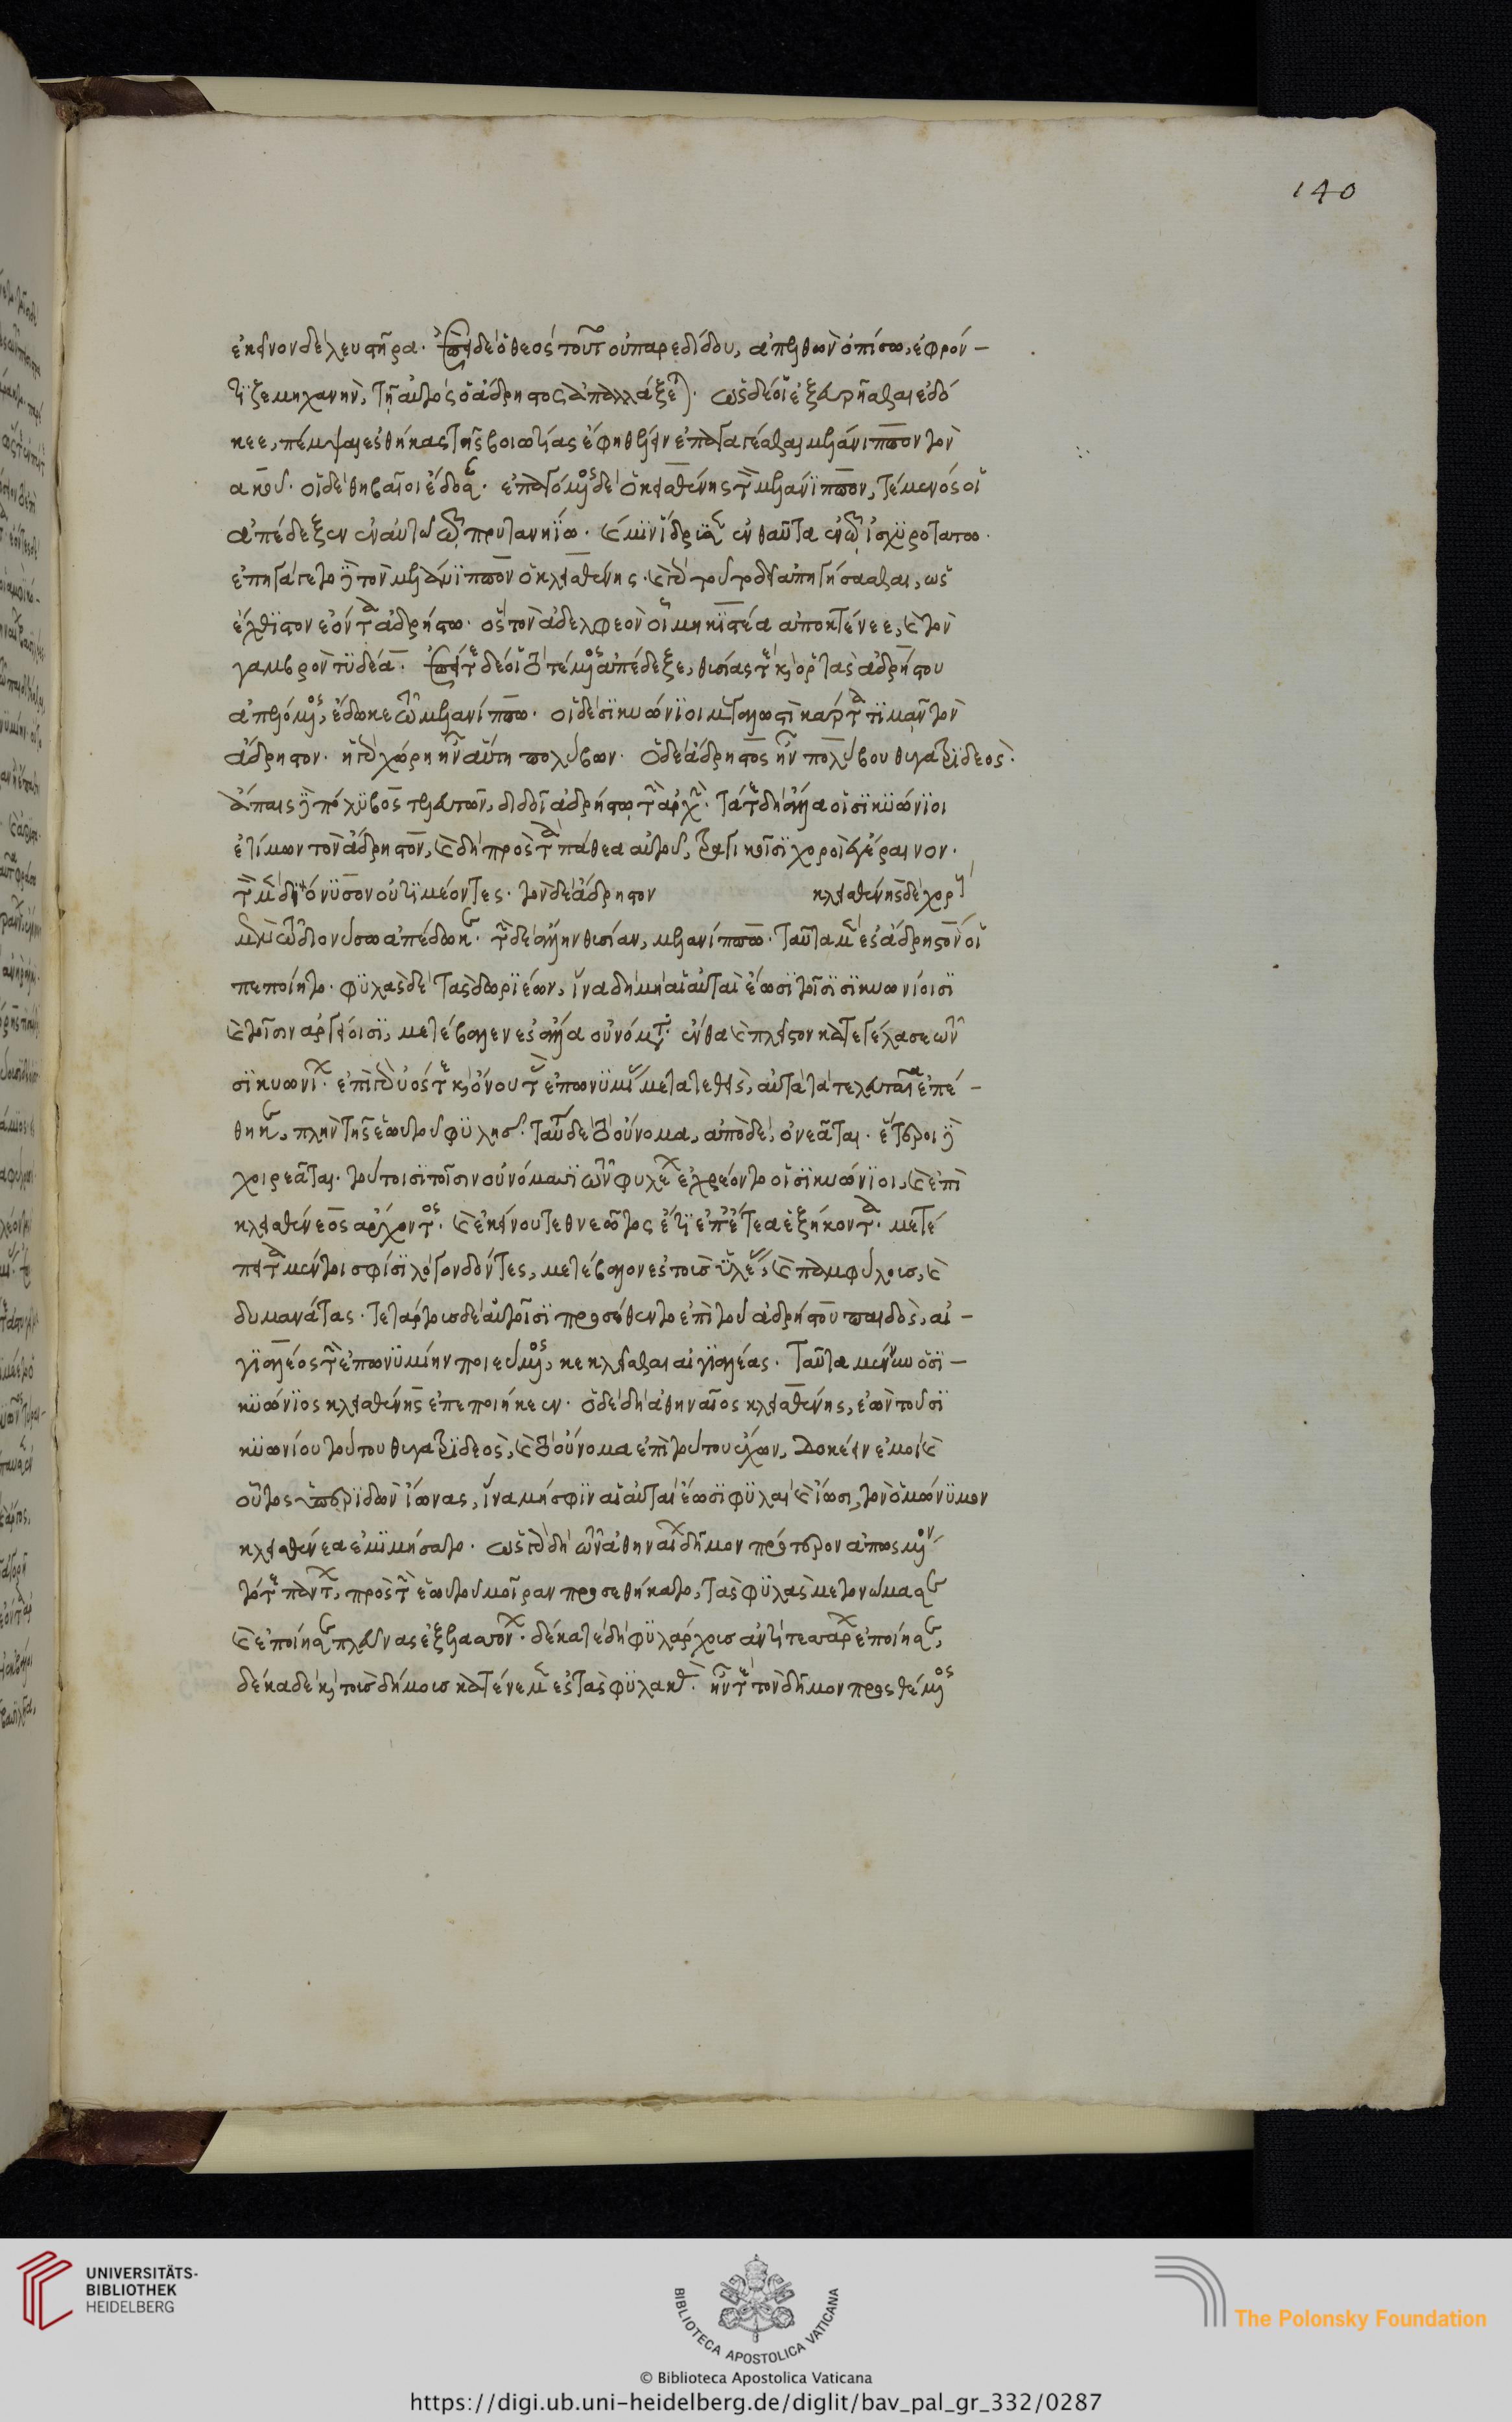 140
ἐκεῖνον δὲ λευστῆρα. ἐπεὶ δὲ ὁ θεὸς τοῦτο οὐ παρεδίδου, ἀπελθὼν ὀπίσω, ἐφρόν-
τιζε μηχανὴν, τῇ αὐτὸς ὁ ἄδρηστος ἀπαλλάξεται. ὡς δέ οἱ ἐξευρῆσθαι ἐδό
κεε, πέμψας ἐς θήβας τῆς βοιωτίας ἔφη θέλειν ἐπαγαγέσθαι μελάνιππον τὸν
ἀστακοῦ. οἱ δὲ θηβαῖοι ἔδοσαν. ἐπαγόμενος δὲ ὁ κλεισθένης τὸν μελάνιππον, τέμενός οἱ
ἀπέδεξεν ἐν αὐτῷ τῷ πρυτανηίῳ. καί μιν ἵδρυσε ἐνθαῦτα ἐν τῷ ἰσχυροτάτῳ.
ἐπηγάγετο δὲ τὸν μελάνιππον ὁ κλεισθένης. καὶ γὰρ τοῦτο δεῖ ἀπηγήσασθαι, ὡς
ἔχθιστον ἐόντα ἀδρήστῳ. ὃς τὸν ἀδελφεόν οἱ μηκιστέα ἀπεκτόνεε, καὶ τὸν
γαμβρὸν τυδέα. ἐπείτε δέ οἱ τὸ τέμενος ἀπέδεξε, θυσίας τε καὶ ὁρτὰς ἀδρήστου
ἀπελόμενος, ἔδωκε τῷ μελανίππῳ. οἱ δὲ σικυώνιοι μεγαλωστὶ κάρτα τιμᾶν τὸν
ἄδρηστον. ἡ γὰρ χώρη ἦν αὕτη πολύβου. ὁ δὲ ἄδρηστος ἦν πολύβου θυγατριδεός.
ἄπαις δὲ πόλυβος τελευτῶν, διδοῖ ἀδρήστῳ τὴν ἀρχήν. τά τε δὴ ἄλλα οἱ σικυώνιοι
ἐτίμων τὸν ἄδρηστον, καὶ δὴ πρὸς τὰ πάθεα αὐτοῦ, τραγικοῖσι χοροῖσι ἐγέραιρον.
τὸν μὲν διόνυσον οὐ τιμέοντες. τὸν δὲ ἄδρηστον κλεισθένης δὲ χοροὺς
μὲν τῷ διονύσῳ ἀπέδωκε. τὴν δὲ ἄλλην θυσίαν, μελανίππῳ. ταῦτα μὲν ἐς ἄδρηστόν οἱ
πεποίητο. φυλὰς δὲ τὰς δωριέων, ἵνα δὴ μὴ αἱ αὐταὶ ἔωσι τοῖσι σικυωνίοισι
καὶ τοῖσιν ἀργείοισι, μετέβαλεν ἐς ἄλλα οὐνόματα. ἔνθα καὶ πλεῖστον κατεγέλασε τῶν
σικυωνίων. ἐπὶ γὰρ ὑός τε καὶ ὄνου τὰς ἐπωνυμίας μετατεθεὶς, αὐτὰ τὰ τελευταῖα ἐπέ-
θηκε, πλὴν τῆς ἑωυτοῦ φυλῆς. ταύτῃ δὲ τὸ οὔνομα, ἀπὸ δὲ, ὀνεᾶται. ἕτεροι δὲ
χοιρεᾶται. τούτοισι τοῖσιν οὐνόμασι τῶν φυλέων ἐχρέοντο οἱ σικυώνιοι, καὶ ἐπὶ
κλεισθένεος ἄρχοντος. καὶ ἐκείνου τεθνεῶτος ἔτι ἐπ' ἔτεα ἑξήκοντα. μετέ
πειτα μέντοι σφίσι λόγον δόντες, μετέβαλον ἐς τοὺς ὑλέας, καὶ παμφύλους, καὶ
δυμανάτας. τετάρτους δὲ αὐτοῖσι προσέθεντο ἐπὶ τοῦ ἀδρήστου παιδὸς, αἰ-
γιαλέος τὴν ἐπωνυμίην ποιεύμενος, κεκλεῖσθαι αἰγιαλέας. ταῦτα μέν νυν ὁ σι-
κυώνιος κλεισθένης ἐπεποιήκεεν. ὁ δὲ δὴ ἀθηναῖος κλεισθένης, ἐὼν τοῦ σι
κυωνίου τούτου θυγατριδεὸς, καὶ τὸ οὔνομα ἐπὶ τούτου ἔχων, δοκέειν ἐμοὶ καὶ
οὗτος ὑπεριδὼν ἴωνας, ἵνα μή σφιν αἱ αὐταὶ ἔωσι φυλαὶ καὶ ἴωσι, τὸν ὁμώνυμον
κλεισθένεα ἐμιμήσατο. ὡς γὰρ δὴ τῶν ἀθηναίων δῆμον πρότερον ἀπωσμένον
τότε πάντων, πρὸς τὴν ἑωυτοῦ μοῖραν προσεθήκατο, τὰς φυλὰς μετωνόμασε
καὶ ἐποίησε πλεῦνας ἐξ ἐλασσόνων. δέκα τε δὴ φυλάρχους ἀντὶ τεσσάρων ἐποίησε,
δέκα δὲ καὶ τοὺς δήμους κατένεμεν ἐς τὰς φυλάς. ἦν τε τὸν δῆμον προσθέμενος
UNIVERSITÄTS-
BIBLIOTHEK
HEIDELBERG
BIBLIOTECA APOSTOLICA VATICANA
The Polonsky Foundation
© Biblioteca Apostolica Vaticana
https://digi.ub.uni-heidelberg.de/diglit/bav_pal_gr_332/0287